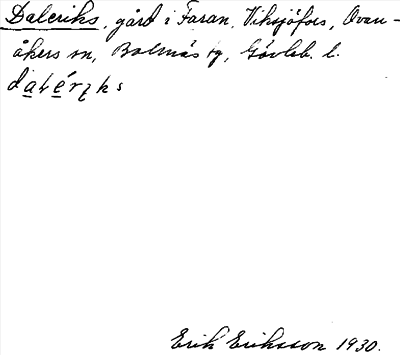 Daleriks, gård i Faran, Viksjöfors, Ovan-
åkers sn, Bolmäs tg, Gävleb. l.
dalérıks
Erik Eriksson 1930.